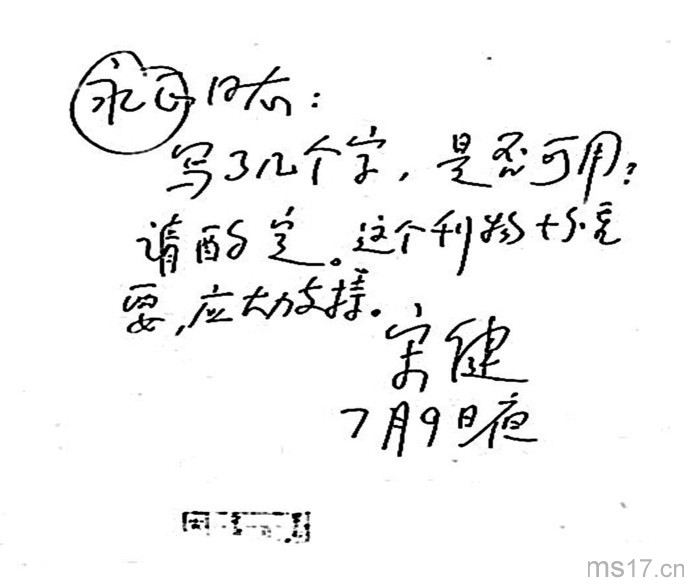 永正同志：
写了几个字，是否可用？
请酌定。这个刊物十分重
要，应大力支持。
宋健
7月9日夜
ms17.cn